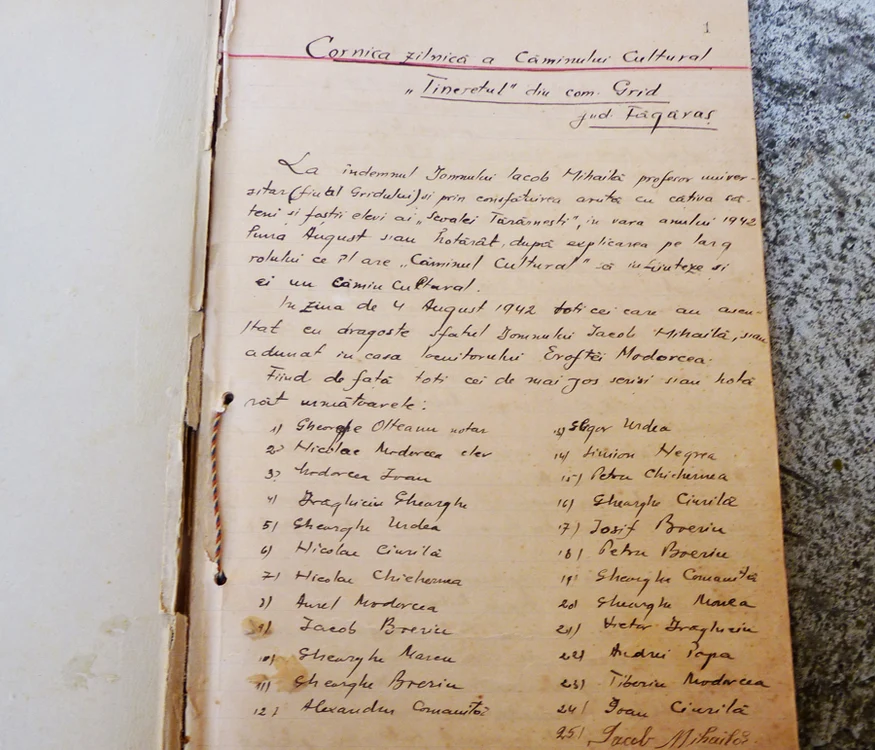 1
Cornica zilnică a Căminului Cultural
„Tineretul" din com. Grid
jud. Făgăraș
La îndemnul Domnului Iacob Mihăilă profesor univer-
zitar (fiu al Gridului) și prin consfătuirea avută cu câțiva să-
teni și foștii elevi ai „Școalei Țărănești", în vara anului 1942
luna August s'au hotărât, după explicarea pe larg
rolului ce îl are „Căminul Cultural" să înființeze și
ei un Cămin Cultural.
In ziua de 4 August 1942 toți cei care au ascul-
tat cu dragoste sfatul Domnului Iacob Mihăilă, s'au
adunat în casa locuitorului Eroftei Modorcea.
Fiind de față toți cei de mai jos scriși s'au hotă
rât următoarele:
1) Gheorghe Olteanu notar
2) Nicolae Modorcea elev
3) Modorcea Ioan
4) Drăghiciu Gheorghe
5) Gheorghe Urdea
6) Nicolae Ciurilă
7) Nicolae Chichernea
8) Aurel Modorcea
9) Iacob Boeriu
10) Gheorghe Marcu
11) Gheorghe Boeriu
12) Alexandru Comaniță
13) Urdea
14) Simion Negrea
15) Petru Chichernea
16) Gheorghe Ciurilă
17) Iosif Boeriu
18) Petru Boeriu
19) Gheorghe Comaniță
20) Gheorghe Monea
21) Victor Drăghiciu
22) Andrei Popa
23) Tiberiu Modorcea
24) Ioan Ciurilă
25) Iacob Mihăilă